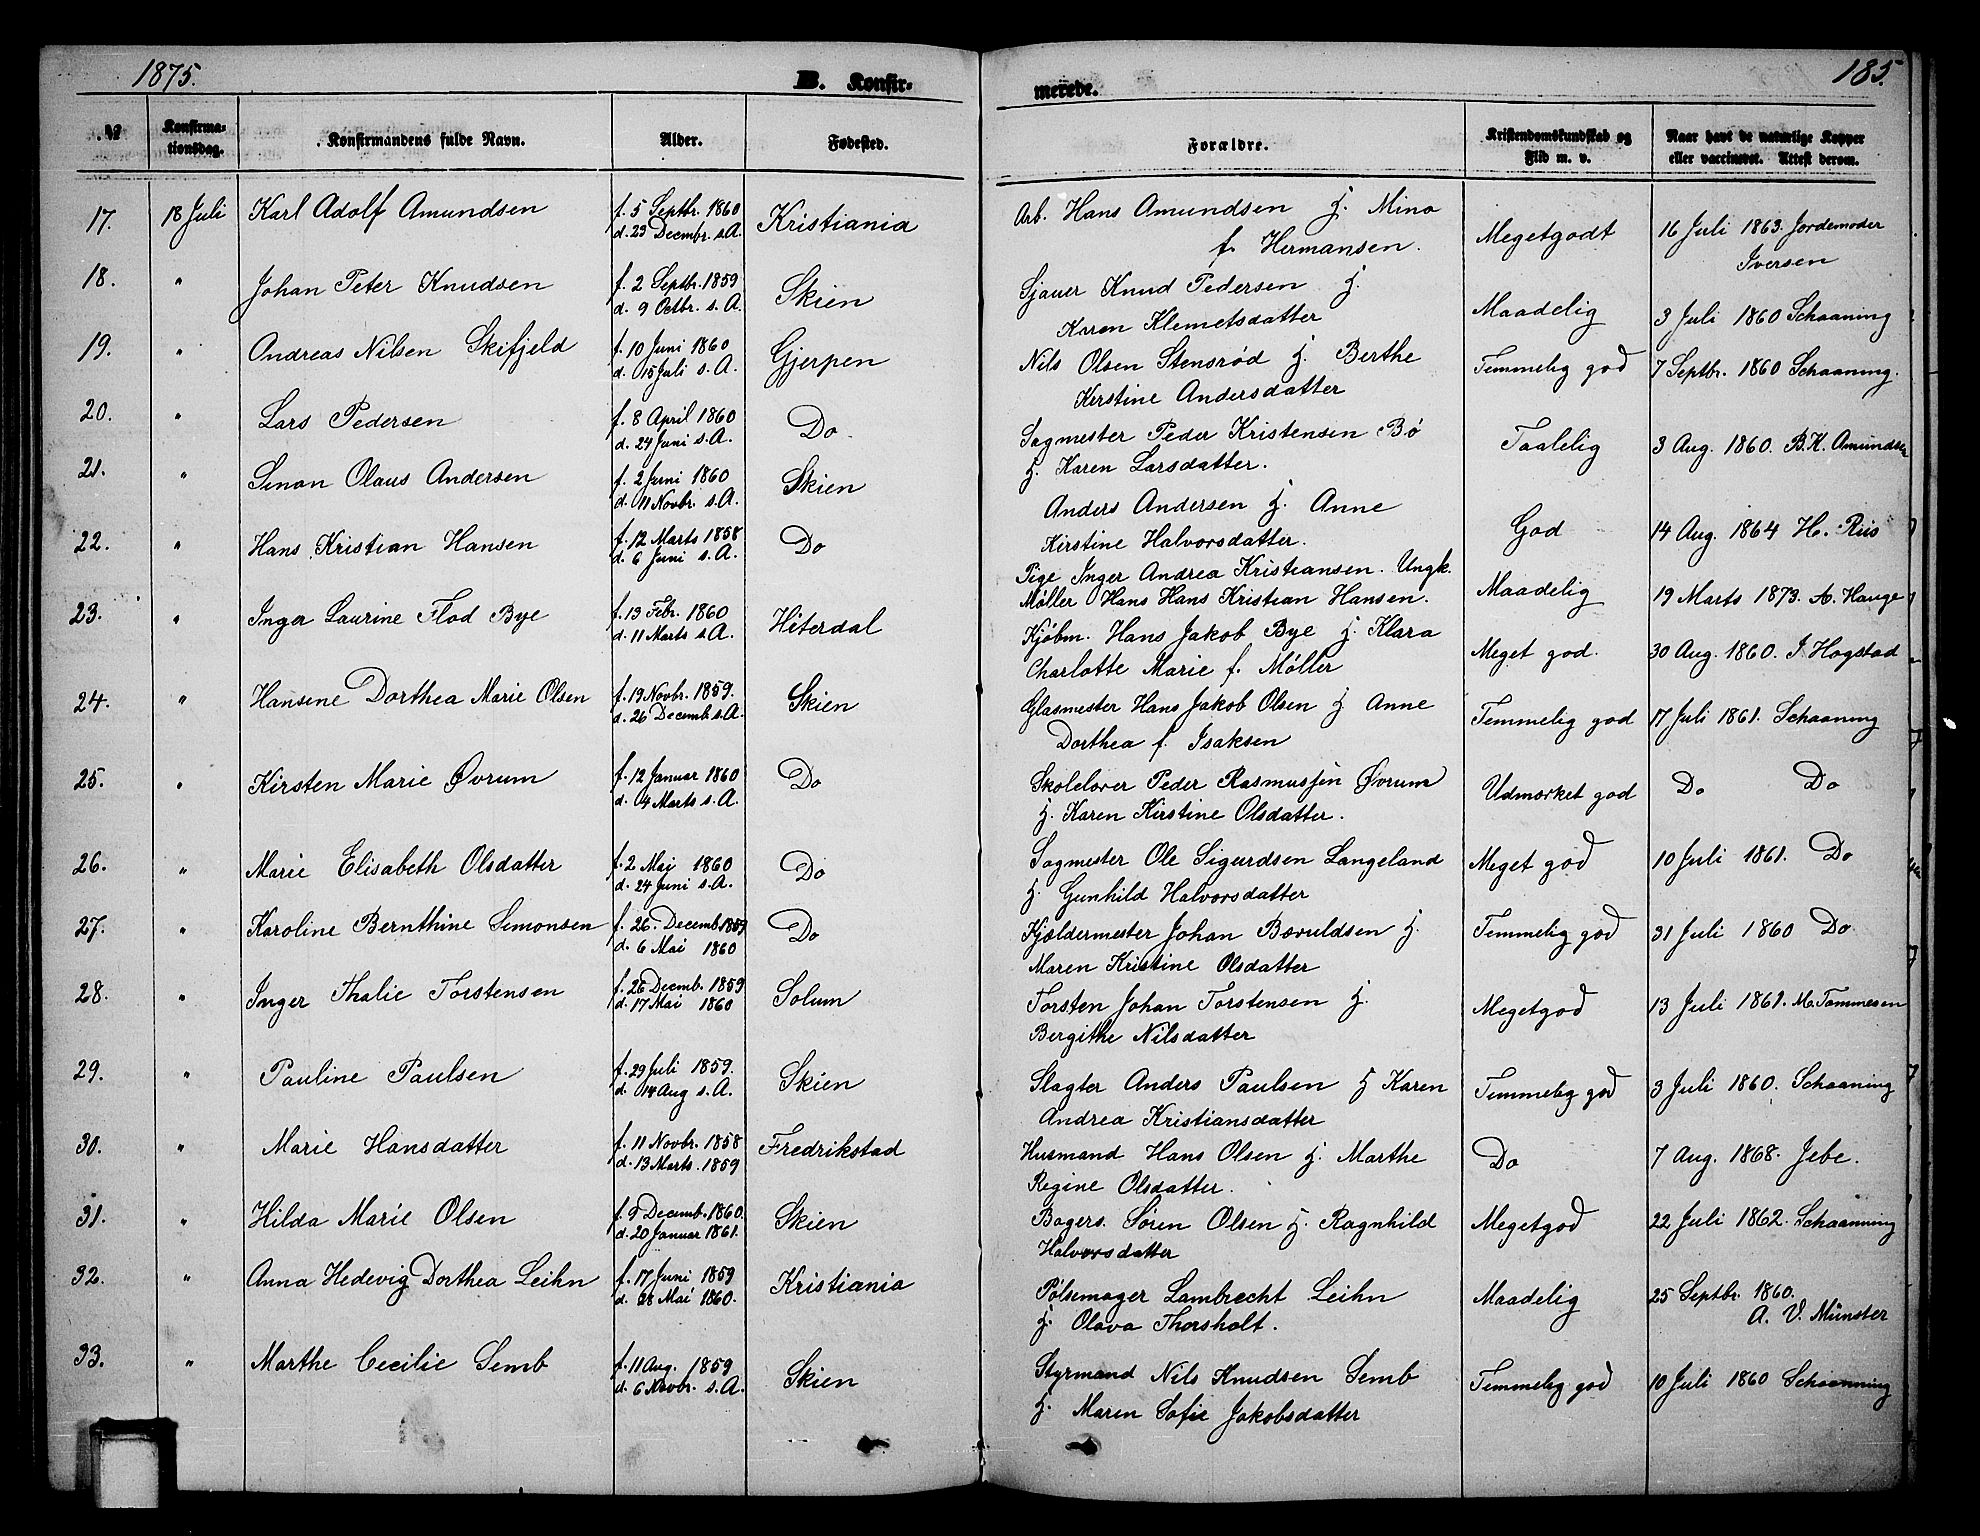 1875.
B. Konfir-
merede.
185.
№ Konfirma-
tionsdag. Konfirmandens fulde Navn. Alder. Fødested. Forældre. Kristendomskundskab og
Flid m. v. Naar havt de naturlige Kopper
eller vaccineret. Attest derom.
17. 18 Juli Karl Adolf Amundsen f. 5 Septbr. 1860 Kristiania Arb. Hans Amundsen Hj. Mina Megetgodt 16 Juli 1863. Jordemoder
d. 23 Decmbr. s.A. f. Hermansen. Iversen
18. " Johan Peter Knudsen f. 2 Septbr. 1859 Skien Sjauer Knud Pedersen Hj. Maadelig 3 Juli 1860 Schaaning
d. 9 Octbr. s.A. Karen Klemetsdatter
19. " Andreas Nilsen Skifjeld f. 10 Juni 1860 Gjerpen Nils Olsen Stensrød Hj. Berthe Temmelig god 7 Septbr. 1860 Schaaning.
d. 15 Juli s.A. Kirstine Andersdatter
20. " Lars Pedersen f. 8 April 1860 Do. Sagmester Peder Kristensen Bø Taalelig 3 Aug. 1860. B.K. Amundsen
d. 24 Juni s.A. Hj. Karen Larsdatter.
21. " Simon Olaus Andersen f. 2 Juni 1860 Skien Anders Andersen Hj. Anne God 14 Aug. 1864 H. Riis
d. 11 Novbr. s.A. Kirstine Halvorsdatter.
22. " Hans Kristian Hansen f. 12 Marts 1858 Do Pige Inger Andrea Kristiansen. Ungk. Maadelig 19 Marts 1873. A. Hauge
d. 6 Juni s.A. Møller Hans Hans Kristian Hansen.
23. " Inger Laurine Flod Bye f. 13 Febr. 1860 Hiterdal Kjøbm. Hans Jakob Bye Hj. Klara Meget god. 30 Aug. 1860. I Hogstad
d. 11 Marts s.A. Charlotte Marie f. Møller
24. " Hansene Dorthea Marie Olsen f. 19 Novbr. 1859. Skien Glasmester Hans Jakob Olsen Hj Anne Temmelig god 17 Juli 1861. Schaaning
d. 26 Decemb. s.A. Dorthea f. Isaksen
25. " Kirsten Marie Øvrum f. 12 Januar 1860 Do Skolelærer Peder Rasmussen Øvrum Udmærket god Do Do
d. 4 Marts s.A. Hj. Karen Kirstine Olsdatter.
26. " Marie Elisabeth Olsdatter f. 2 Mai 1860 Do Sagmester Ole Sigurdsen Langeland Meget god 10 Juli 1861. Do
d. 24 Juni s.A. Hj. Gunhild Halvorsdatter
27. " Karoline Bernthine Simonsen f. 26. Decemb. 1859 Do Kjældermester Johan Bæruldsen Hj. Temmelig god 31 Juli 1860 Do
d. 6 Mai 1860 Maren Kristine Olsdatter
28. " Inger Thalie Torstensen f. 26 Decmb. 1859 Solum Torsten Johan Torstensen Hj. Megetgod 13 Juli 1861. M. Tommesen
d. 17 Mai 1860 Bergithe Nilsdatter
29. " Pauline Paulsen f. 29 Juli 1859. Skien Slagter Anders Paulsen Hj Karen Temmelig god 3 Juli 1860. Schaaning
d. 14 Aug s.A. Andrea Kristiansdatter
30. " Marie Hansdatter f. 11 Novbr. 1858 Fredrikstad Husmand Hans Olsen Hj. Marthe Do 7 Aug. 1868. Jebe.
d. 13 Marts. 1859 Regine Olsdatter.
31. " Hilda Marie Olsen f. 9 Decemb. 1860. Skien Bagers. Søren Olsen Hj. Ragnhild Megetgod 22 Juli 1862. Schaanning
d. 20 Januar 1861. Halvorsdatter
32. " Anna Hedevig Dorthea Leihn f. 17 Juni 1859 Kristiania Pølsemager Lambrecht Leihn Maadelig 25 Septbr. 1860.
d. 28 Mai 1860. Hj. Olava Thorsholt. A. V. Münster
33. " Marthe Cecilie Semb f. 11 Aug. 1859 Skien Styrmand Nils Knudsen Semb Temmelig god 10 Juli 1860 Schaanning
d. 6 Novbr. s.A. Hj. Maren Sofie Jakobsdatter